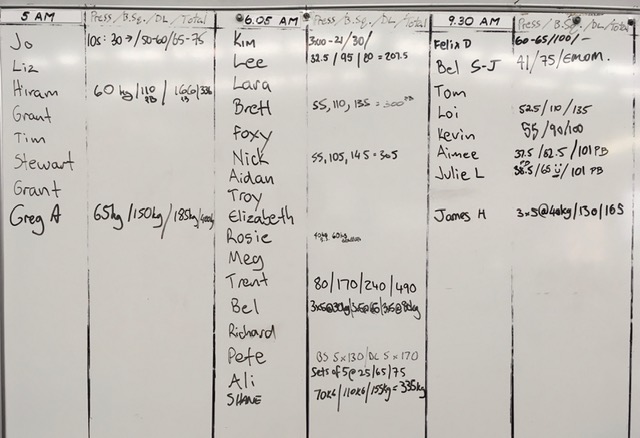 5 AM Press/B.Sq./DL/Total
Jo 10s: 30→/50-60/65-75
Liz
Hiram 60 kg/110 PB/
Grant
Tim
Stewart
Grant
Greg A 65kg/150kg/185kg/400kg
6.05 AM Press/B.Sq./DL/Total
Kim
Lee 32.5/95/80 = 207.5
Lara
Brett 55, 110, 135 = 300 PB
Foxy
Nick 55, 105, 145 = 305
Aidan
Troy
Elizabeth
Rosie
Meg
Trent 80/170/240/490
Bel
Richard
Pete BS 5x130/DL 5x170
Ali Sets of 5@25/65/75
SHANE 70kg/110kg/155kg=335kg
9.30 AM Press/B.Sq./DL/Total
Felix D 60-65/100/-
Bel S-J 41/75/EMOM.
Tom
Loi 52.5/110/135
Kevin 55/90/100
Aimee 37.5/82.5/101 PB
Julie L /65/101 PB
James H 3x5@40kg/130/165